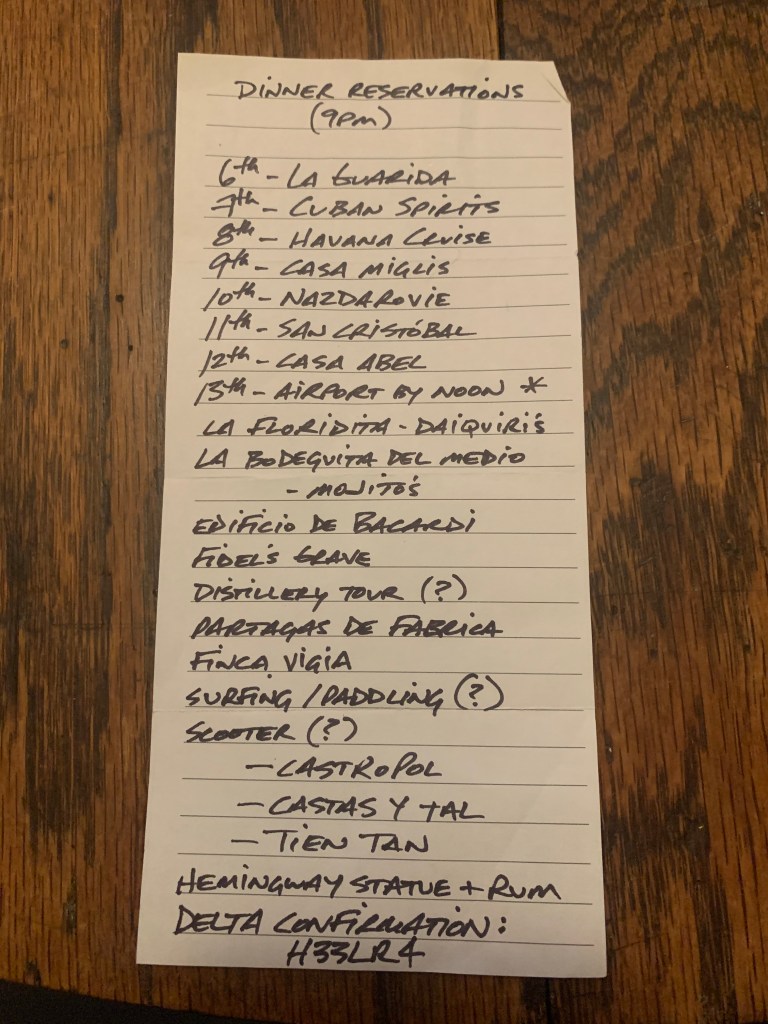 DINNER RESERVATIONS
(9PM)
6th - LA GUARIDA
7th - CUBAN SPIRITS
8th - HAVANA CRUISE
9th - CASA MIGLIS
10th - NAZDAROVIE
11th - SAN CRISTÓBAL
12th - CASA ABEL
13th - AIRPORT BY NOON *
LA FLORIDITA - DAIQUIRI'S
LA BODEGUITA DEL MEDIO
- MOJITO'S
EDIFICIO DE BACARDI
FIDEL'S GRAVE
DISTILLERY TOUR (?)
PARTAGAS DE FABRICA
FINCA VIGIA
SURFING / PADDLING (?)
SCOOTER (?)
- CASTROPOL
- CASTAS Y TAL
- TIEN TAN
HEMINGWAY STATUE + RUM
DELTA CONFIRMATION:
H33LR4